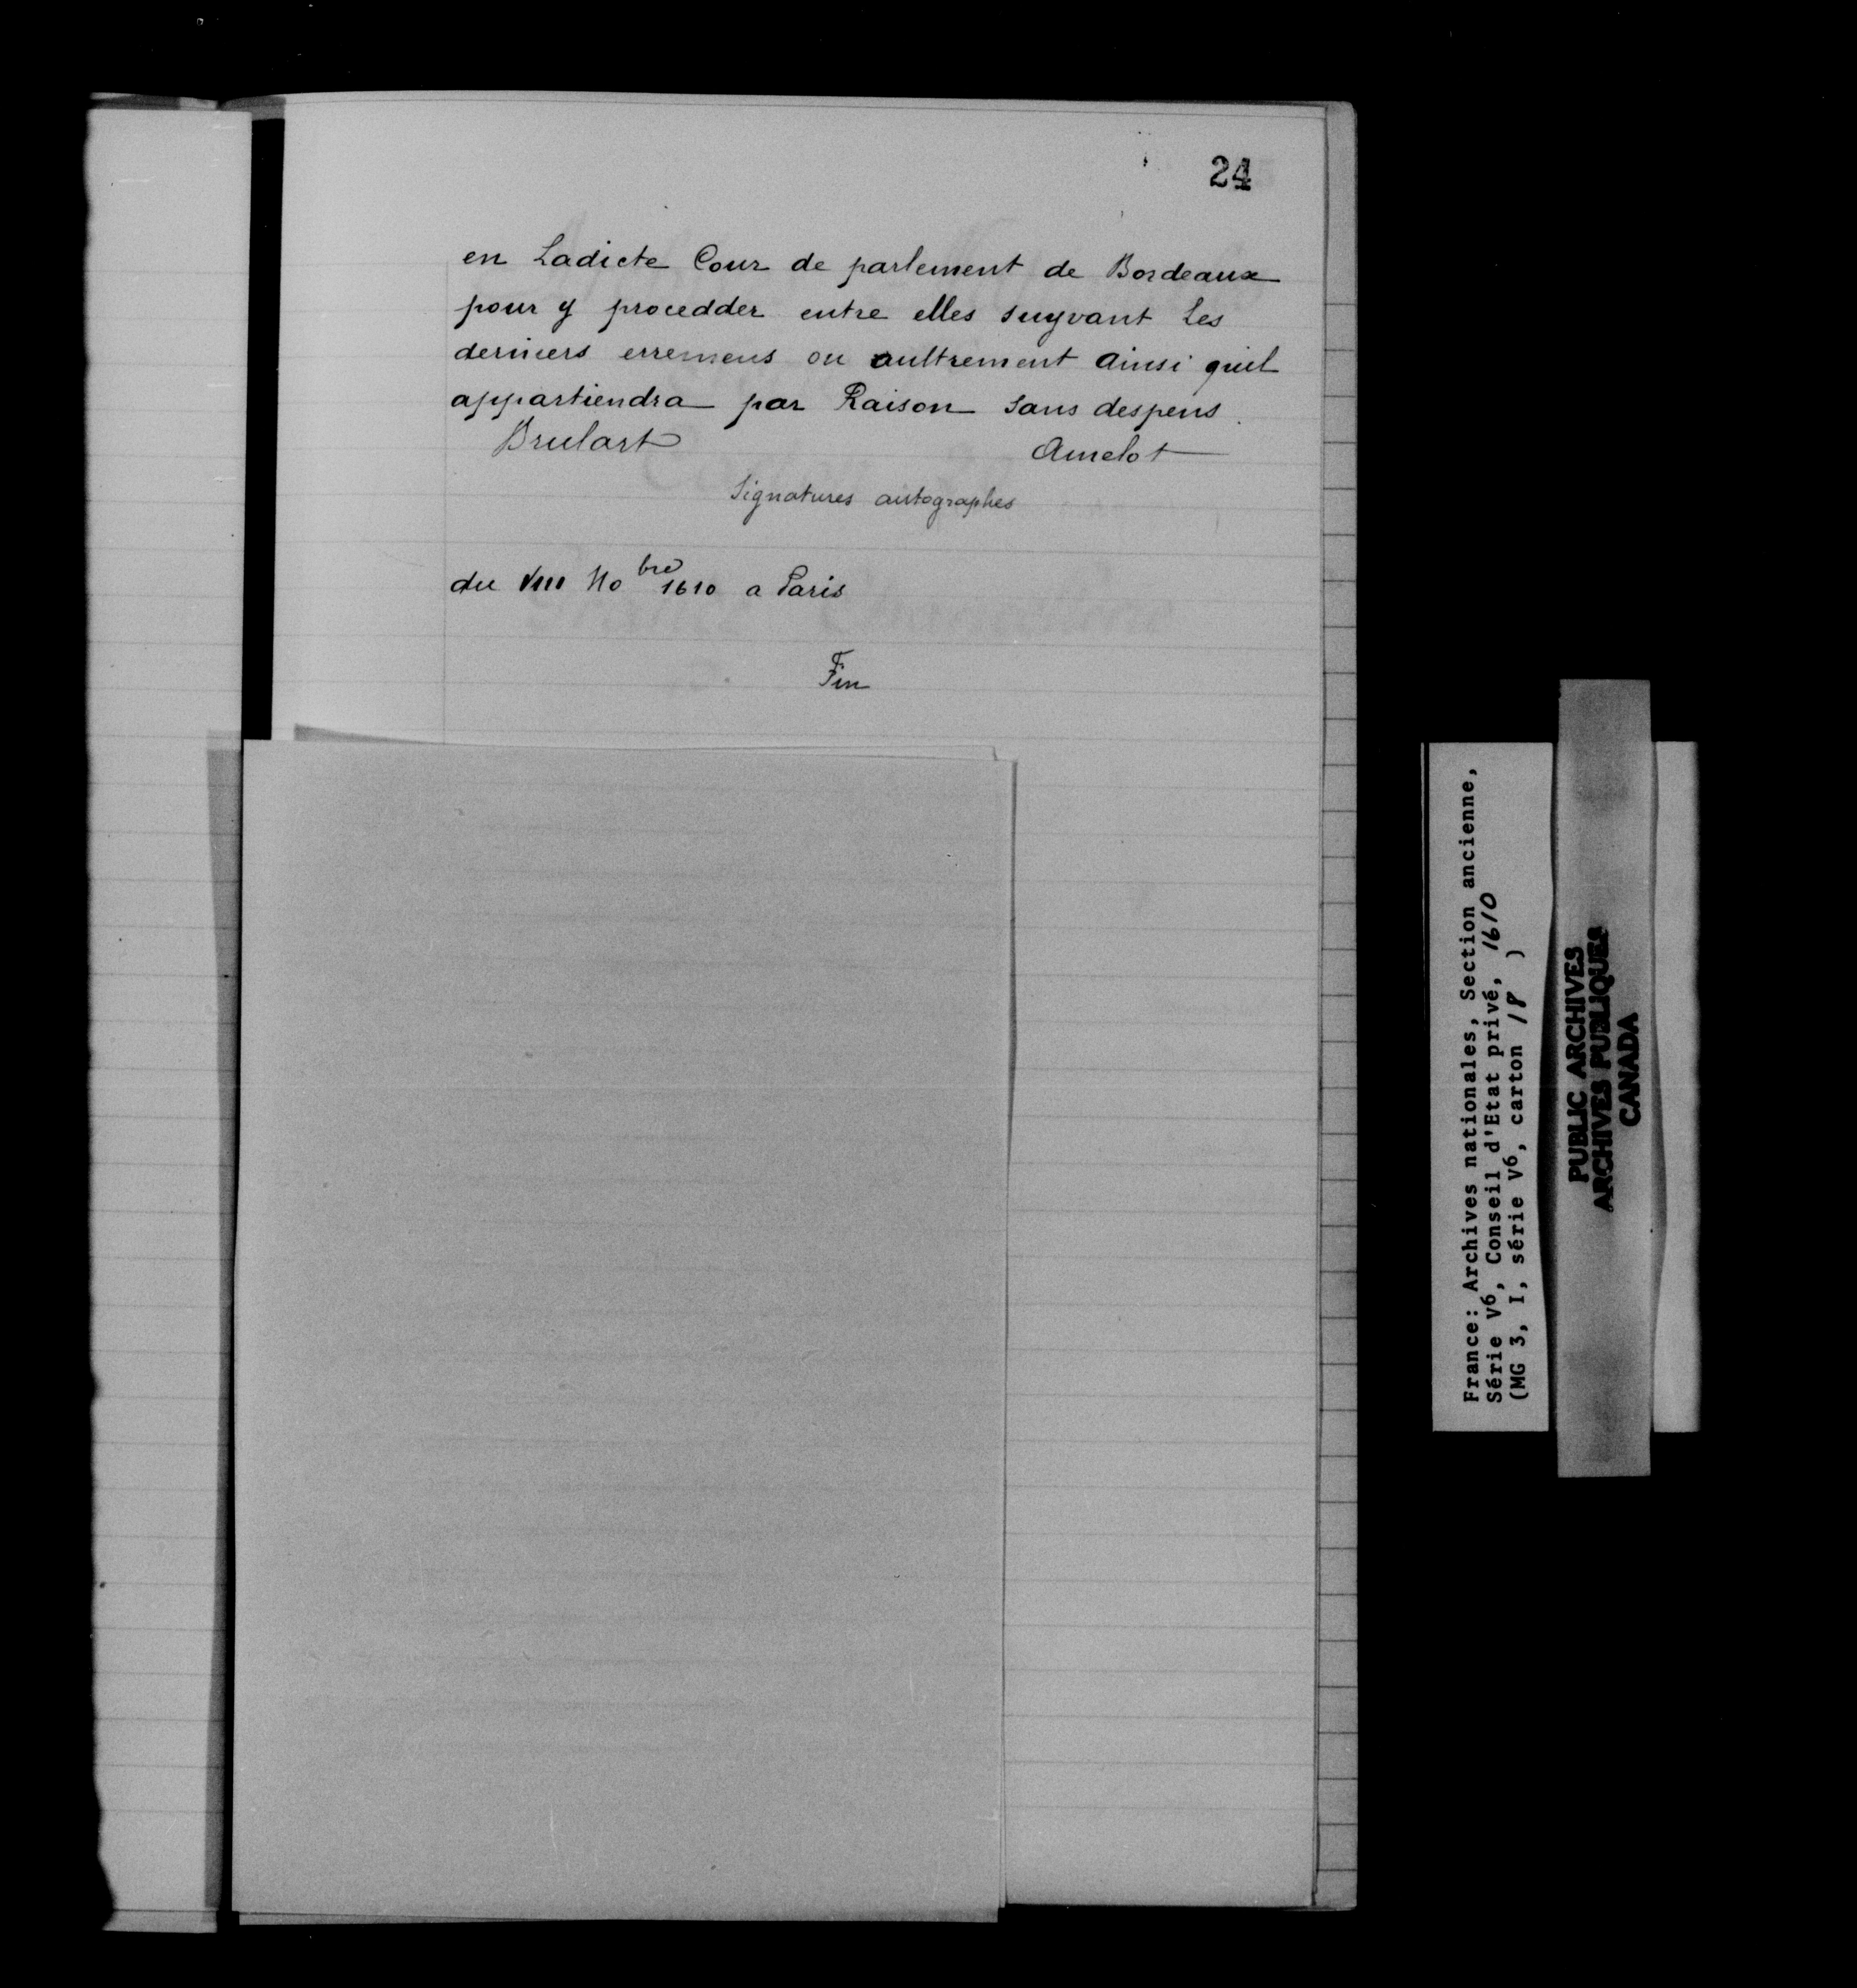 24
en Ladicte Cour de parlement de Bordeaux
pour y procedder entre elles suyvant Les
derniers erremens ou aultrement ainsi quil
appartiendra par Raison sans despens.
Brulart Amelot
Signatures autographes
du VIII Nobre 1610 a Paris
Fin
France: Archives nationales, Section ancienne,
Série V6, Conseil d'Etat privé, 1610
(MG 3, I, série V6, carton 18 )
PUBLIC ARCHIVES
ARCHIVES PUBLIQUES
CANADA